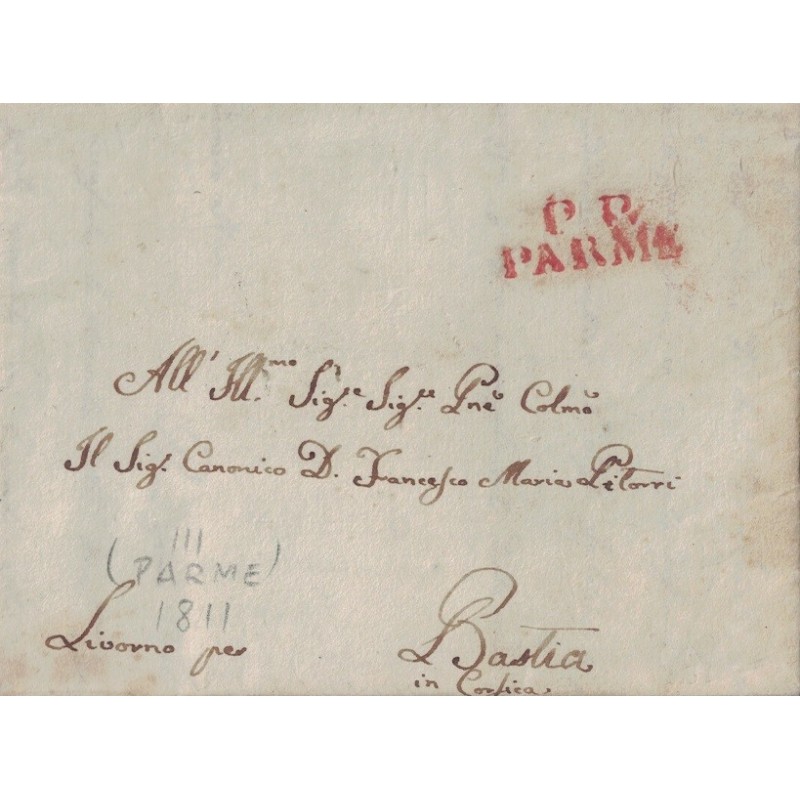 P. P.
PARME
All' Ill.mo Sig.e Sig.re Pne Colmo
Il Sig. Canonico D. Francesco Maria Pitorri
(111
PARME)
1811
Livorno per Bastia
in Corsica